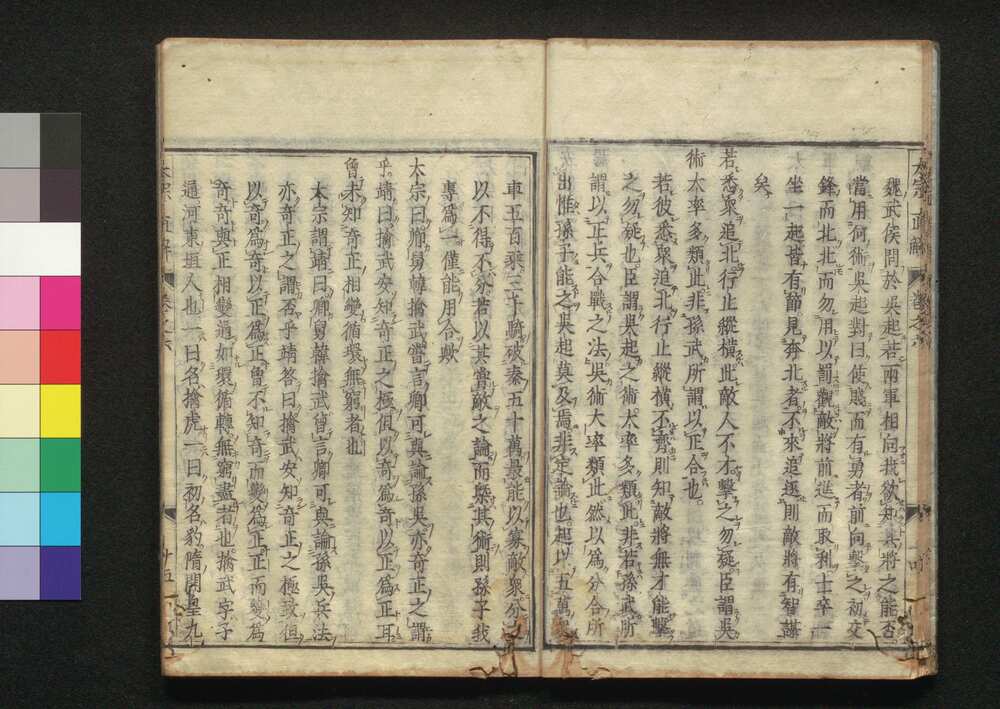 魏武侯問於吳起若兩軍相向我欲知其將之能否
當用何術吳起對曰使賤而有勇者前向擊之初交
鋒而北北而勿用以罰觀敵將前進而取利士卒一
坐一起皆有節見奔北者不來追趕則敵將有智謀
矣
若悉眾追北行止縱橫此敵人不才擊之勿疑臣謂吳
術大率多類此非孫武所謂以正合也
若彼悉眾追北行止縱橫不齊則知敵將無才能擊
之勿疑也臣謂吳起之術大率多類此非若孫武所
謂以正兵合戰之法吳術大率類此然以為分合所
出惟孫子能之吳起莫及焉非定論也起以五萬
車五百乘三千騎破秦五十萬最能以寡敵眾分
以不得不分若以其嘗敵之論而槩其術則孫子我
專為一僅能用合歟
太宗曰卿舅韓擒武嘗言卿可與論孫吳亦奇正之謂
乎靖曰擒武安知奇正之極但以奇為奇以正為正耳
曾未知奇正相變循環無窮者也
太宗謂靖曰卿舅韓擒武曾言卿可與論孫吳兵法
亦奇正之謂否乎靖答曰擒武安知奇正之極致但
以奇為奇以正為正曾不知奇而變為正正而變為
奇奇與正相變通如環循轉無窮盡者也擒武字子
通河東垣人也一曰名擒虎一曰初名豹隋開皇九